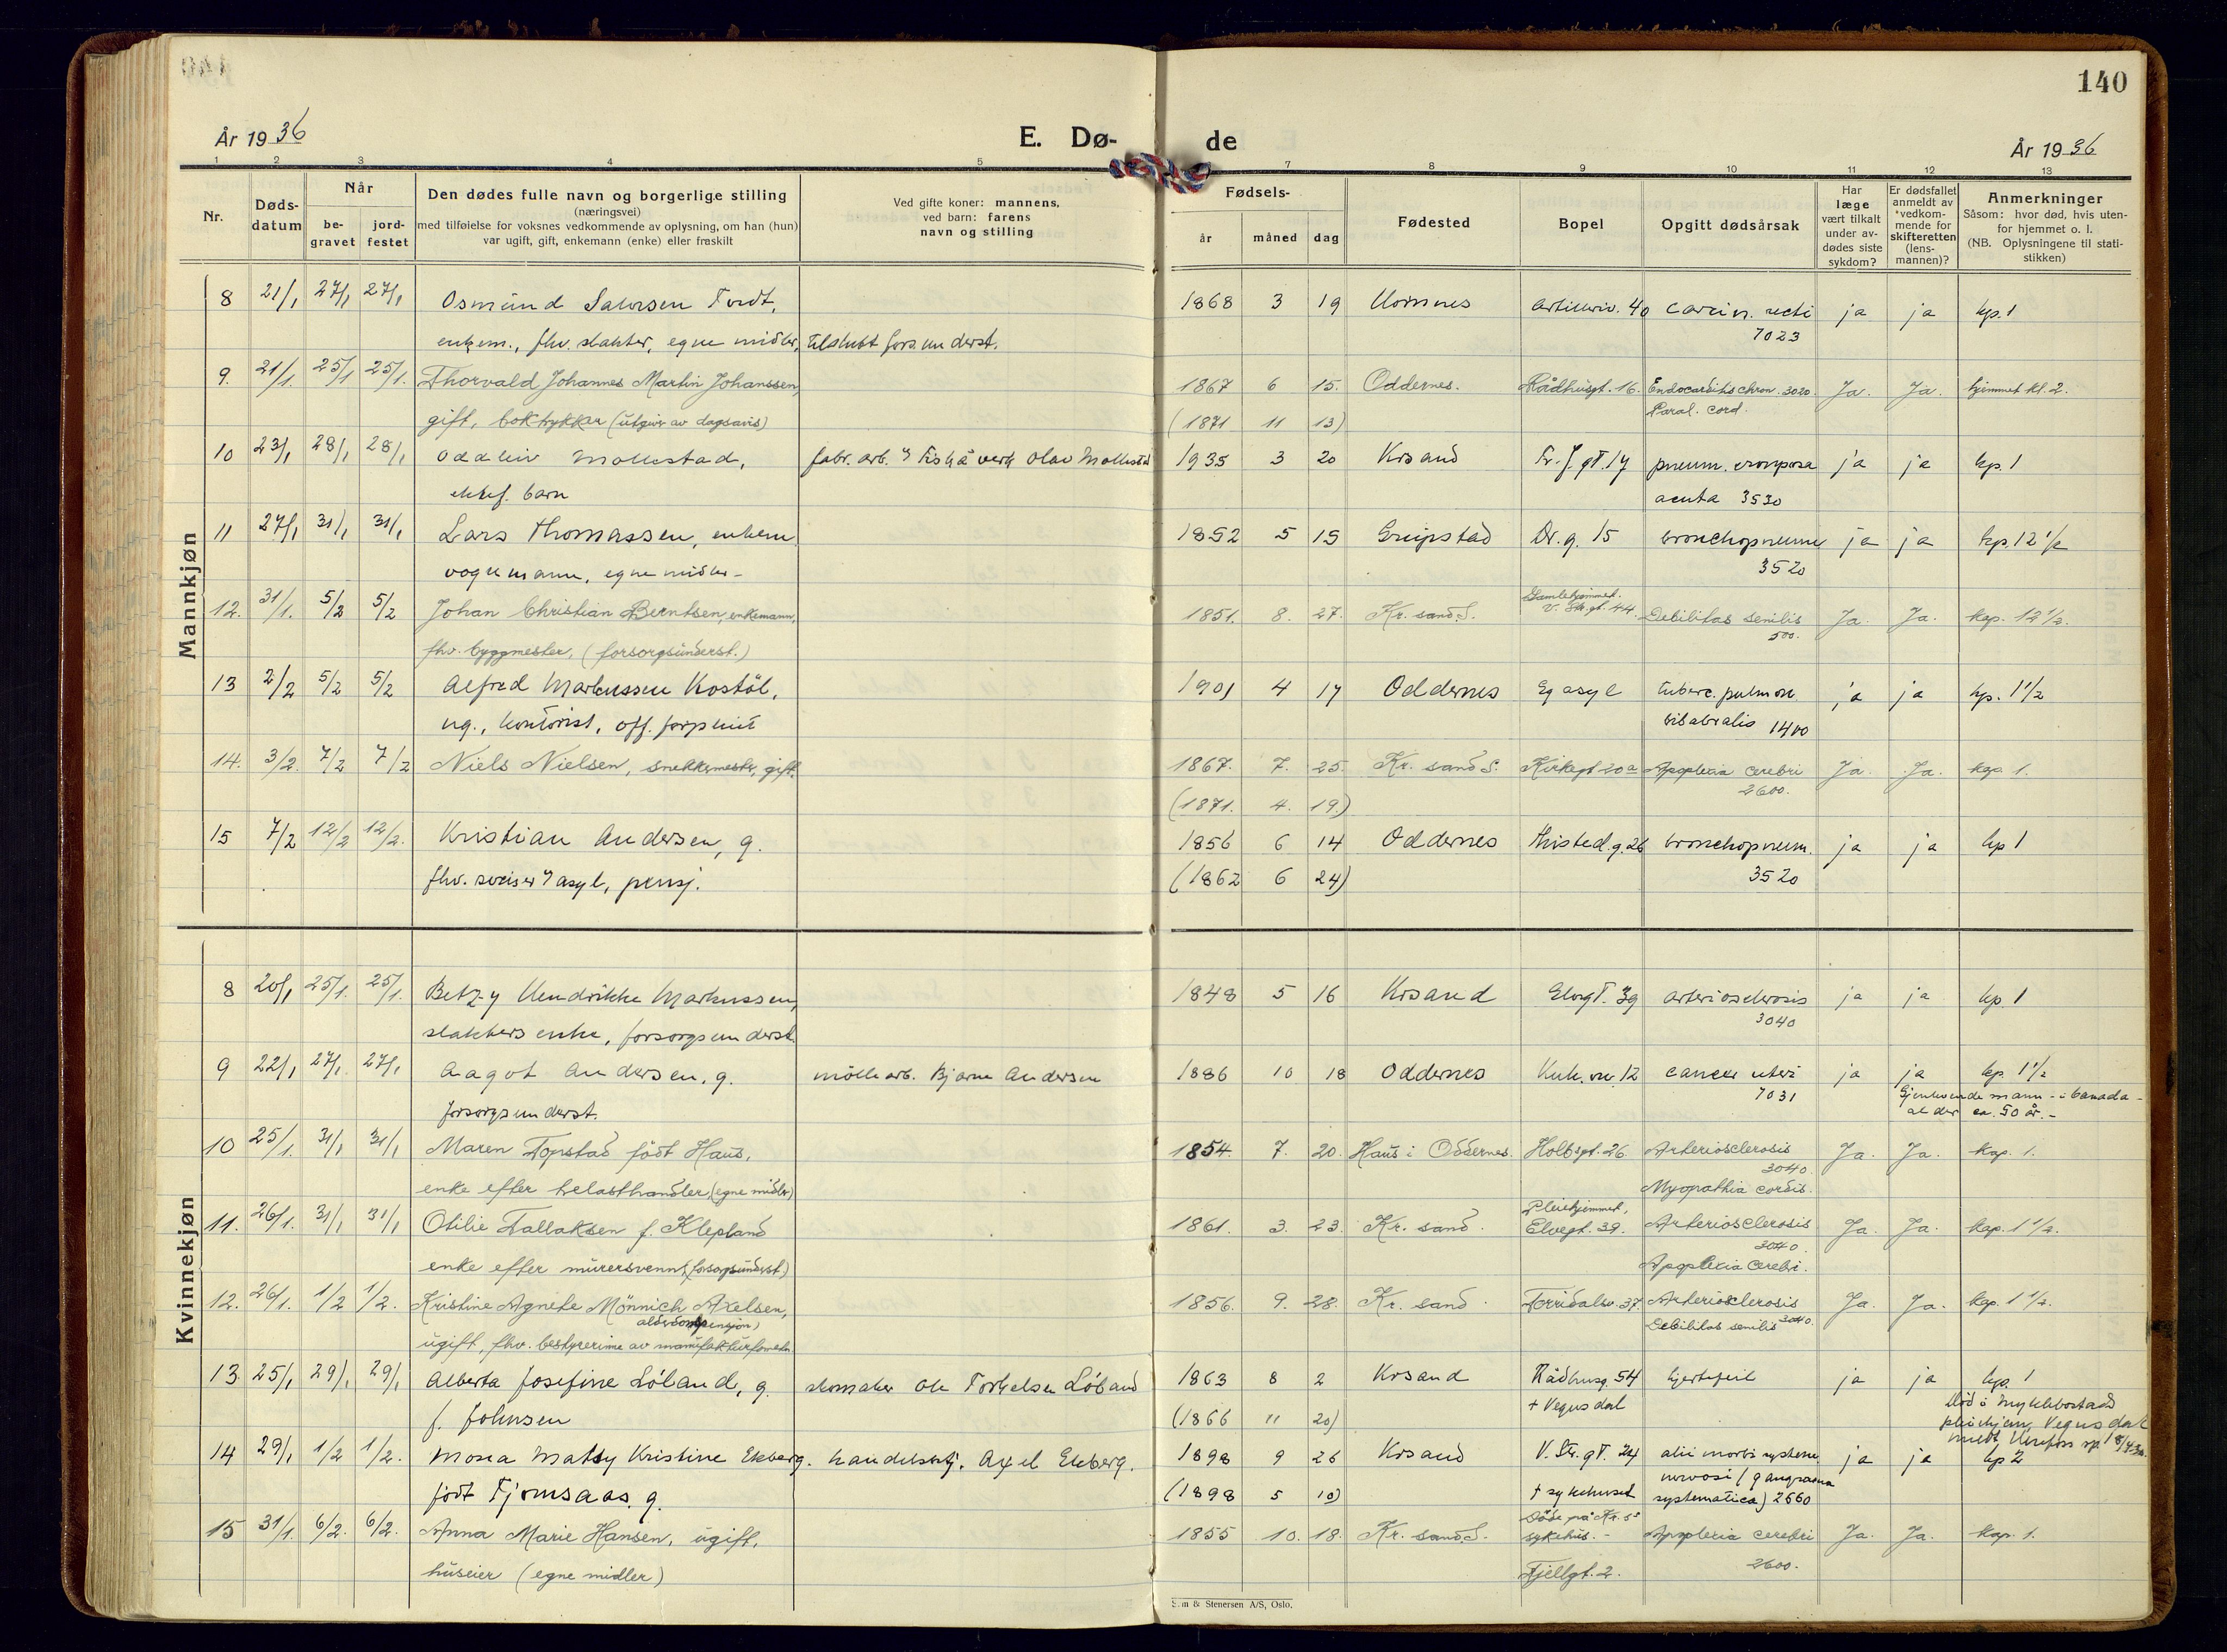 140
År 1936
E. Dø-
de
År 1936
1 2 3 4 5 7 8 9 10 11 12 13
Nr.
Døds-
datum
Når
be-
gravet
jord-
festet
Den dødes fulle navn og borgerlige stilling
(næringsvei)
med tilføielse for voksnes vedkommende av oplysning, om han (hun)
var ugift, gift, enkemann (enke) eller fraskilt
Ved gifte koner: mannens,
ved barn: farens
navn og stilling
Fødsels-
år måned dag
Fødested
Bopel
Opgitt dødsårsak
Har
læge
vært tilkalt
under av-
dødes siste
sykdom?
Er dødsfallet
anmeldt av
vedkom-
mende for
skifteretten
(lens-
mannen)?
Anmerkninger
Såsom: hvor død, hvis uten-
for hjemmet o. l.
(NB. Oplysningene til stati-
stikken)
Mannkjøn
8 21/1 27/1 27/1 Osmund Tordt, 1868 3 19 Hornnes Artilleriv. 40 carcin. recti ja ja kp. 1
enkem., fhv. slakter, egne midler, tilskutt fors.underst. 7023
9. 21/1. 25/1 25/1. Thorvald Johannes Martin Johanssen, 1867 6 15. Oddernes. Rådhusgt. 16. Endocarditis chron. 3020. Ja. Ja. hjemmet kl. 2.
gift, boktrykker (utgiver av dagsavis) (1871 11 13) Paral. cord.
10 23/1 28/1 28/1 Oddleiv Mollestad, fabr. arb. v Fiskå verk Olav Mollestad 1935 3 20 Krsand Fr. f. gt. 17 pneum. crouposa ja ja kp. 1
ektef. barn acuta 3530
11 27/1 31/1 31/1 Lars Thomassen, enkem 1852 5 15 Greipstad Dr. g. 15 bronchopneum ja ja kp. 12 1/2
vognmann, egne midler - 3520
12. 31/1. 5/2 5/2 Johan Christian Berntsen, enkemann, 1851. 8. 27. Kr. sand S. Samlehjemmet. V. Str. gt. 44. Debilitas senilis Ja. Ja. kap. 12 1/2.
fhv. byggmester, (forsorgsunderst.) 500.
13 2/2 5/2 5/2 Alfred Markussen Kostöl, 1901 4 17 Oddernes Eg asyl tuberc. pulmon. ja ja kp. 1 1/2
ug., kontorist, off. forpleiet 1400
14. 3/2. 7/2 7/2 Niels Nielsen, snekkermester, gift. 1867. 7. 25. Kr. sand S. Kirkegt 20a Apoplexia cerebri Ja. Ja. kap. 1.
(1871. 4. 19.) 2600.
15 7/2 12/2 12/2. Kristian Andersen, g. 1856 6 14 Oddernes Thisted. g. 26 bronchopneum. ja ja kp 1
fhv. asyl, pensj. (1862 6 24) 3520
Kvinnekjøn
8 20/1 25/1. 25/1. Betzy Hendrikke Markussen, 1848 5 16 Krsand Elvegt. 39 arteriosclerosis ja ja kp. 1
slakters enke, forsorgsunderst. 3040
9 22/1 27/1. 27/1 Aagot Andersen, g. møllearb. Bjarne Andersen 1886 10 18 Oddernes Kuh. vn. 12 cancer uteri ja ja kp. 1 1/2
forsorgsunderst. 7031 Gjenlevende mann - i Canada -
alder ca. 50 år. -
10 25/1. 31/1 31/1 Maren Topstad födt Haus, 1854. 7. 20. Haus i Oddernes. Holbsgt. 26 Arteriosclerosis Ja. Ja. Kap. 1.
enke efter trelasthandler (egne midler) 3040.
Myopathia cordis.
11. 26/1. 31/1 31/1 Otilie Tallaksen f. Klepland 1861. 3. 23. Kr. sand. Pleiehjemmet, Elvegt. 39. Arteriosclerosis Ja. Ja. kap. 1 1/2.
enke efter murersvenn, (forsorgsunderst.) 3040.
Apoplexia cerebri.
12. 26/1. 1/2 1/2. Kristine Agnete Mönnich Axelsen, 1856. 9. 28. Kr. sand. Torridalsv. 37. Arteriosclerosis Ja. Ja. kap. 1 1/2.
alderdomspensjon) Debilitas senilis 3040.
ugift, fhv. bestyrerinne av manufakturforretn.
13. 25/1 29/1 29/1 Alberta Josefine Löland, g. skomaker Ole Torkelsen Löland 1863 8 2 Krsand Rådhusg. 54 hjertefeil ja ja kp. 1
f. Johnsen (1866 11 20) + Vegusdal Död i Myklebostad
pleiehjem, Vegusdal
14 29/1 1/2 1/2. Mona Matty Kristine Ekberg. handelsbetj. Axel Ekberg. 1898 9 26 Krsand V. Str. gt. 24 alii morbi systema ja ja kp 2
född Fjomsaas. g. (1898 5 10) + sykehuset nervosi (gangraena
systematica) 2660
15 31/1. 6/2. 6/2. Anna Marie Hansen, ugift, 1855 10. 18. Kr. sand S. Döde på Kr. S. sykehus. - Apoplexia cerebri Ja. Ja. kap. 1.
huseier (egne midler) Fjellgt. 2. 2600.
Sem & Stenersen A/S, Oslo.